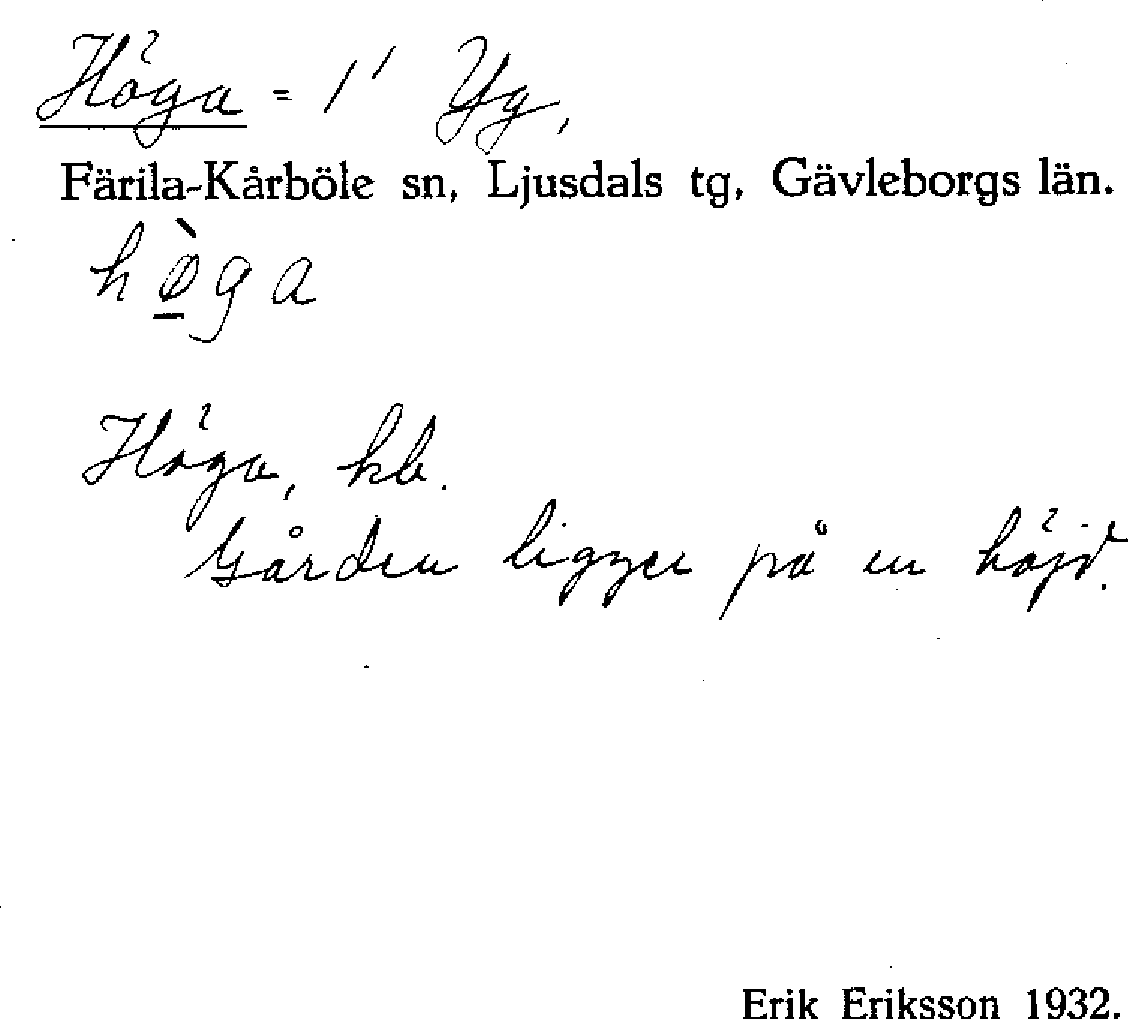 Höga = 1' Yg,
Färila-Kårböle sn, Ljusdals tg, Gävleborgs län.
hø̲̀ga
Höga, kb.
Gården ligger på en höjd.
Erik Eriksson 1932.